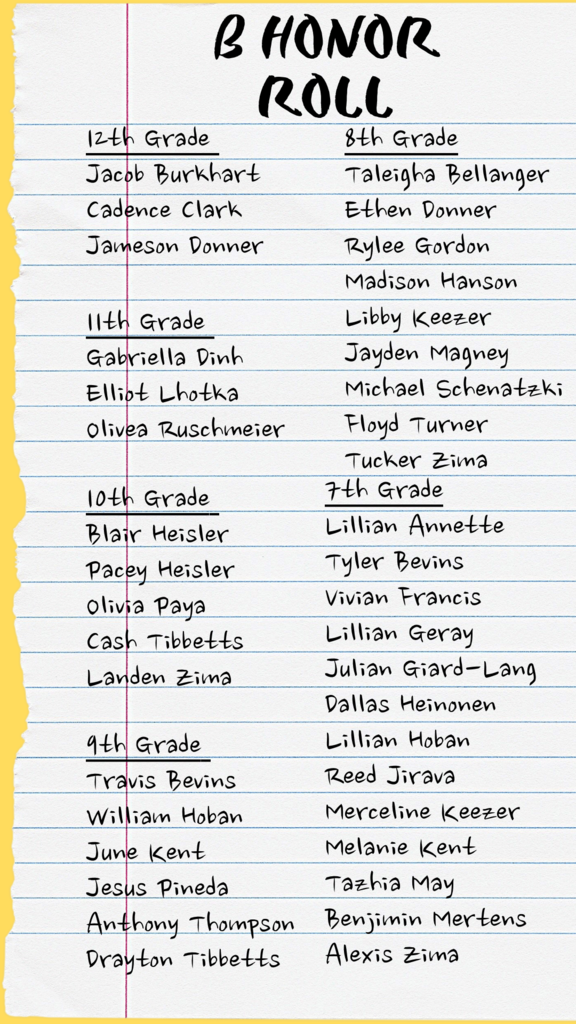 B HONOR
ROLL
12th Grade
Jacob Burkhart
Cadence Clark
Jameson Donner
11th Grade
Gabriella Dinh
Elliot Lhotka
Olivea Ruschmeier
10th Grade
Blair Heisler
Pacey Heisler
Olivia Paya
Cash Tibbetts
Landen Zima
9th Grade
Travis Bevins
William Hoban
June Kent
Jesus Pineda
Anthony Thompson
Drayton Tibbetts
8th Grade
Taleigha Bellanger
Ethen Donner
Rylee Gordon
Madison Hanson
Libby Keezer
Jayden Magney
Michael Schenatzki
Floyd Turner
Tucker Zima
7th Grade
Lillian Annette
Tyler Bevins
Vivian Francis
Lillian Geray
Julian Giard-Lang
Dallas Heinonen
Lillian Hoban
Reed Jirava
Merceline Keezer
Melanie Kent
Tazhia May
Benjimin Mertens
Alexis Zima